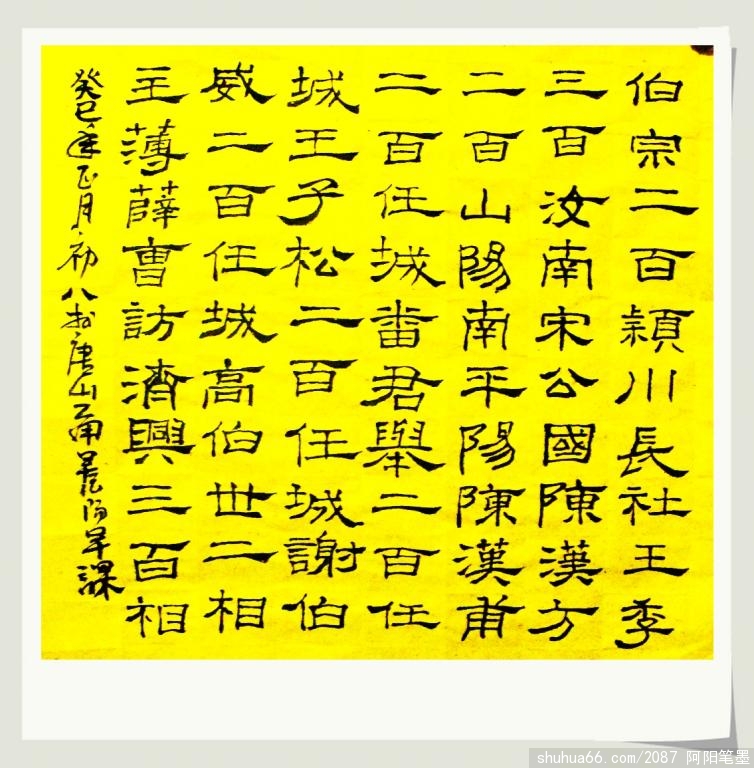 伯宗二百潁川長社王季
三百汝南宋公國陳漢方
二百山陽南平陽陳漢甫
二百任城番君舉二百任
城王子松二百任城謝伯
威二百任城高伯世二相
主薄薛曹訪濟興三百相
癸巳年正月初八於唐山
早課
shuhua66.com/2087 阿阳笔墨